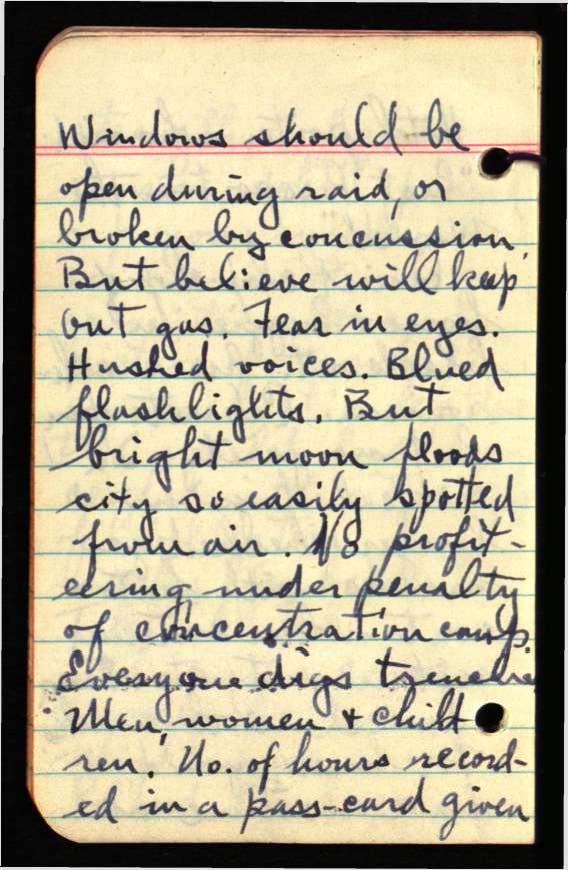 Windows should be
open during raid, or
broken by concussion.
But believe will keep
out gas. Fear in eyes.
Hushed voices. Blued
flashlights. But
bright moon floods
city so easily spotted
from air. No profit-
eering under penalty
of concentration camp.
Everyone digs trenches
Men, women + child
ren. No. of hours record-
ed in a pass-card given